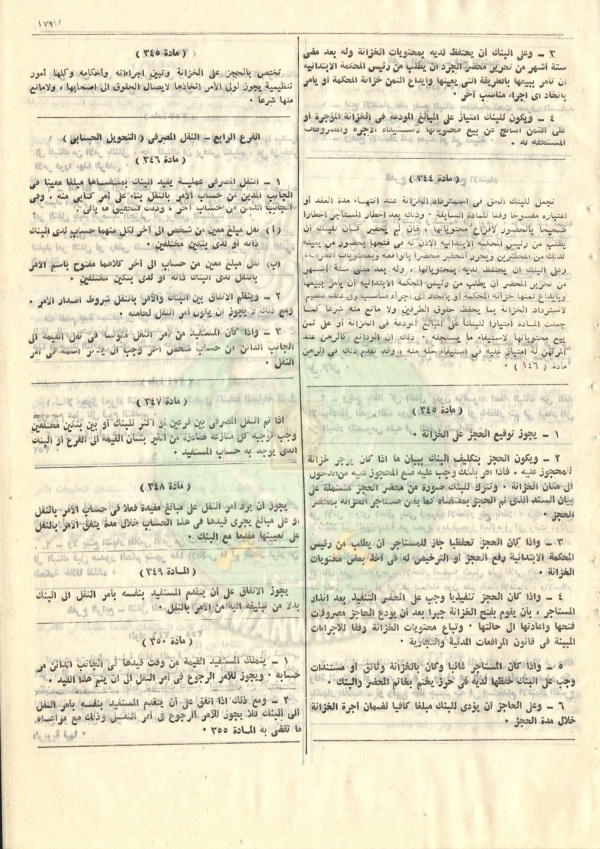 ١٧٩
٣ ـ وعلى البنك أن يحتفظ لديه بمحتويات الخزانة وله بعد مضى
ستة أشهر من تحرير محضر الجرد أن يطلب من رئيس المحكمة الابتدائية
أن تأمر ببيعها بالطريقة التى يعينها وإيداع الثمن خزانة المحكمة أو يأمر
باتخاذ أى إجراء مناسب آخر ٠
٤ ـ ويكون للبنك امتياز على المبالغ المودعة فى الخزانة المؤجرة أو
على الثمن الناتج من بيع محتوياتها لاستيفاء الأجرة والمصروفات
المستحقة له ٠
( مادة ٣٤٤ )
تجعل للبنك الحق فى استرداد الخزانة عند انتهاء مدة العقد أو
اعتباره مفسوخا وفقا للمادة السابقة ٠ وذلك بعد إخطار المستأجر إخطارا
صحيحا بالحضور لإفراغ محتوياتها ، فإن لم يحضر كان للبنك أن
يطلب من رئيس المحكمة الابتدائية الإذن له فى فتحها بحضور من يعينه
لذلك من المحضرين ويحرر المحضر محضرا بالواقعة وبمحتويات الخزانة ٠
وعلى البنك أن يحتفظ لديه بمحتوياتها ، وله بعد مضى ستة أشهر
من تحرير المحضر أن يطلب من رئيس المحكمة الابتدائية أن يأمر ببيعها
وإيداع ثمنها خزانة المحكمة أو باتخاذ أى إجراء مناسب وفى ذلك تنظيم
لاسترداد الخزانة بما يحفظ حقوق الطرفين ولا مانع منه شرعا كما
جعلت المادة امتيازا للبنك على المبالغ المودعة فى الخزانة أو على ثمن
بيع محتوياتها لاستيفاء ما يستحقه ٠ ذلك أن الودائع كالرهن عند
المرتهن له امتياز عليه فى استيفاء حقه منه ، وقد تقدم ذلك فى الرهن
مادة ( ١٤٦ )
( مادة ٣٤٥ )
١ ـ يجوز توقيع الحجز على الخزانة ٠
٢ ـ ويكون الحجز بتكليف البنك ببيان ما إذا كان يؤجر خزانة
للمحجوز عليه ٠ فإذا أقر بذلك وجب عليه منع المحجوز عليه من الدخول
الى مكان الخزانة ٠ وتترك للبنك صورة من محضر الحجز مشتملة على
بيان السند الذى تم الحجز بمقتضاه كما يعلن مستأجر الخزانة بمحضر
الحجز ٠
٣ ـ وإذا كان الحجز تحفظيا جاز للمستأجر أن يطلب من رئيس
المحكمة الابتدائية رفع الحجز أو الترخيص له فى أخذ بعض محتويات
الخزانة ٠
٤ ـ وإذا كان الحجز تنفيذيا وجب على المحضر التنفيذ بعد إنذار
المستأجر ، بأن يقوم بفتح الخزانة جبرا بعد أن يودع الحاجز مصروفات
فتحها وإعادتها الى حالتها ٠ وتباع محتويات الخزانة وفقا للإجراءات
المبينة فى قانون المرافعات المدنية والتجارية ٠
٥ ـ وإذا كان المستأجر غائبا وكان بالخزانة وثائق أو مستندات
وجب على البنك حفظها لديه فى حرز يختم بخاتم المحضر والبنك ٠
٦ ـ وعلى الحاجز أن يؤدى للبنك مبلغا كافيا لضمان أجرة الخزانة
خلال مدة الحجز ٠
( مادة ٣٤٥ )
تختص بالحجز على الخزانة وتبين إجراءاته وأحكامه وكلها أمور
تنظيمية يجوز لولى الأمر اتخاذها لإيصال الحقوق الى أصحابها ، ولامانع
منها شرعا ٠
الفرع الرابع ـ النقل المصرفى ( التحويل الحسابى )
( مادة ٣٤٦ )
١ ـ النقل المصرفى عملية يقيد البنك بمقتضاها مبلغا معينا فى
الجانب المدين من حساب الآمر بالنقل بناء على أمر كتابى منه ، وفى
الجانب الدائن من حساب آخر ، وذلك لتحقيق ما يأتى ٠
( أ ) نقل مبلغ معين من شخص الى آخر لكل منهما حساب لدى البنك
ذاته أو لدى بنكين مختلفين ٠
(ب) نقل مبلغ معين من حساب الى آخر كلاهما مفتوح باسم الآمر
بالنقل لدى البنك ذاته أو لدى بنكين مختلفين ٠
٢ ـ وينظم الاتفاق بين البنك والآمر بالنقل شروط إصدار الأمر ٠
ومع ذلك لا يجوز أن يكون أمر النقل لحامله ٠
٣ ـ وإذا كان المستفيد من أمر النقل مفوضا فى نقل القيمة الى
الجانب الدائن من حساب شخص آخر وجب أن يذكر اسمه فى أمر
النقل ٠
( مادة ٣٤٧ )
إذا تم النقل المصرفى بين فرعين أو أكثر للبنك أو بين بنكين مختلفين
وجب توجيه كل منازعة صادرة من الغير بشأن القيمة الى الفرع أو البنك
الذى يوجد به حساب المستفيد ٠
( مادة ٣٤٨ )
يجوز أن يرد أمر النقل على مبالغ مقيدة فعلا فى حساب الآمر بالنقل
أو على مبالغ يجرى قيدها فى هذا الحساب خلال مدة يتفق الآمر بالنقل
على تعيينها مقدما مع البنك ٠
( المــادة ٣٤٩ )
يجوز الاتفاق على أن يتقدم المستفيد بنفسه بأمر النقل الى البنك
بدلا من تبليغه إليه من الآمر بالنقل ٠
( مادة ٣٥٠ )
١ ـ يتملك المستفيد القيمة من وقت قيدها فى الجانب الدائن من
حسابه ٠ ويجوز للآمر الرجوع فى أمر النقل الى أن يتم هذا القيد ٠
٢ ـ ومع ذلك إذا اتفق على أن يتقدم المستفيد بنفسه بأمر النقل
الى البنك فلا يجوز للآمر الرجوع فى أمر النقل وذلك مع مراعاة
ما تقضى به المادة ٣٥٥ ٠